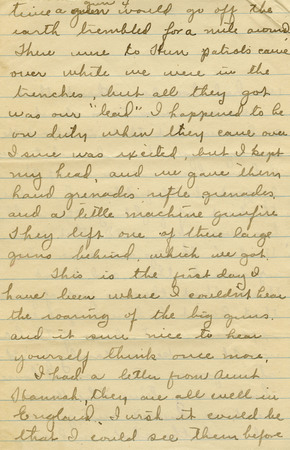 time a gun would go off the
earth trembled for a mile around.
There were to Hun patrols came
over while we were in the
trenches, but all they got
was our "lead". I happened to be
on duty when they came over.
I sure was excited, but I kept
my head, and we gave them
hand grenades rifle grenades,
and a little machine gunfire
They left one of there large
guns behind, which we got.
This is the first day I
have been where I couldn't hear
the roaring of the big guns.
and it sure nice to hear
yourself think once more.
I had a letter from Aunt
Hannah, they are all well in
England. I wish it could be
that I could see them before